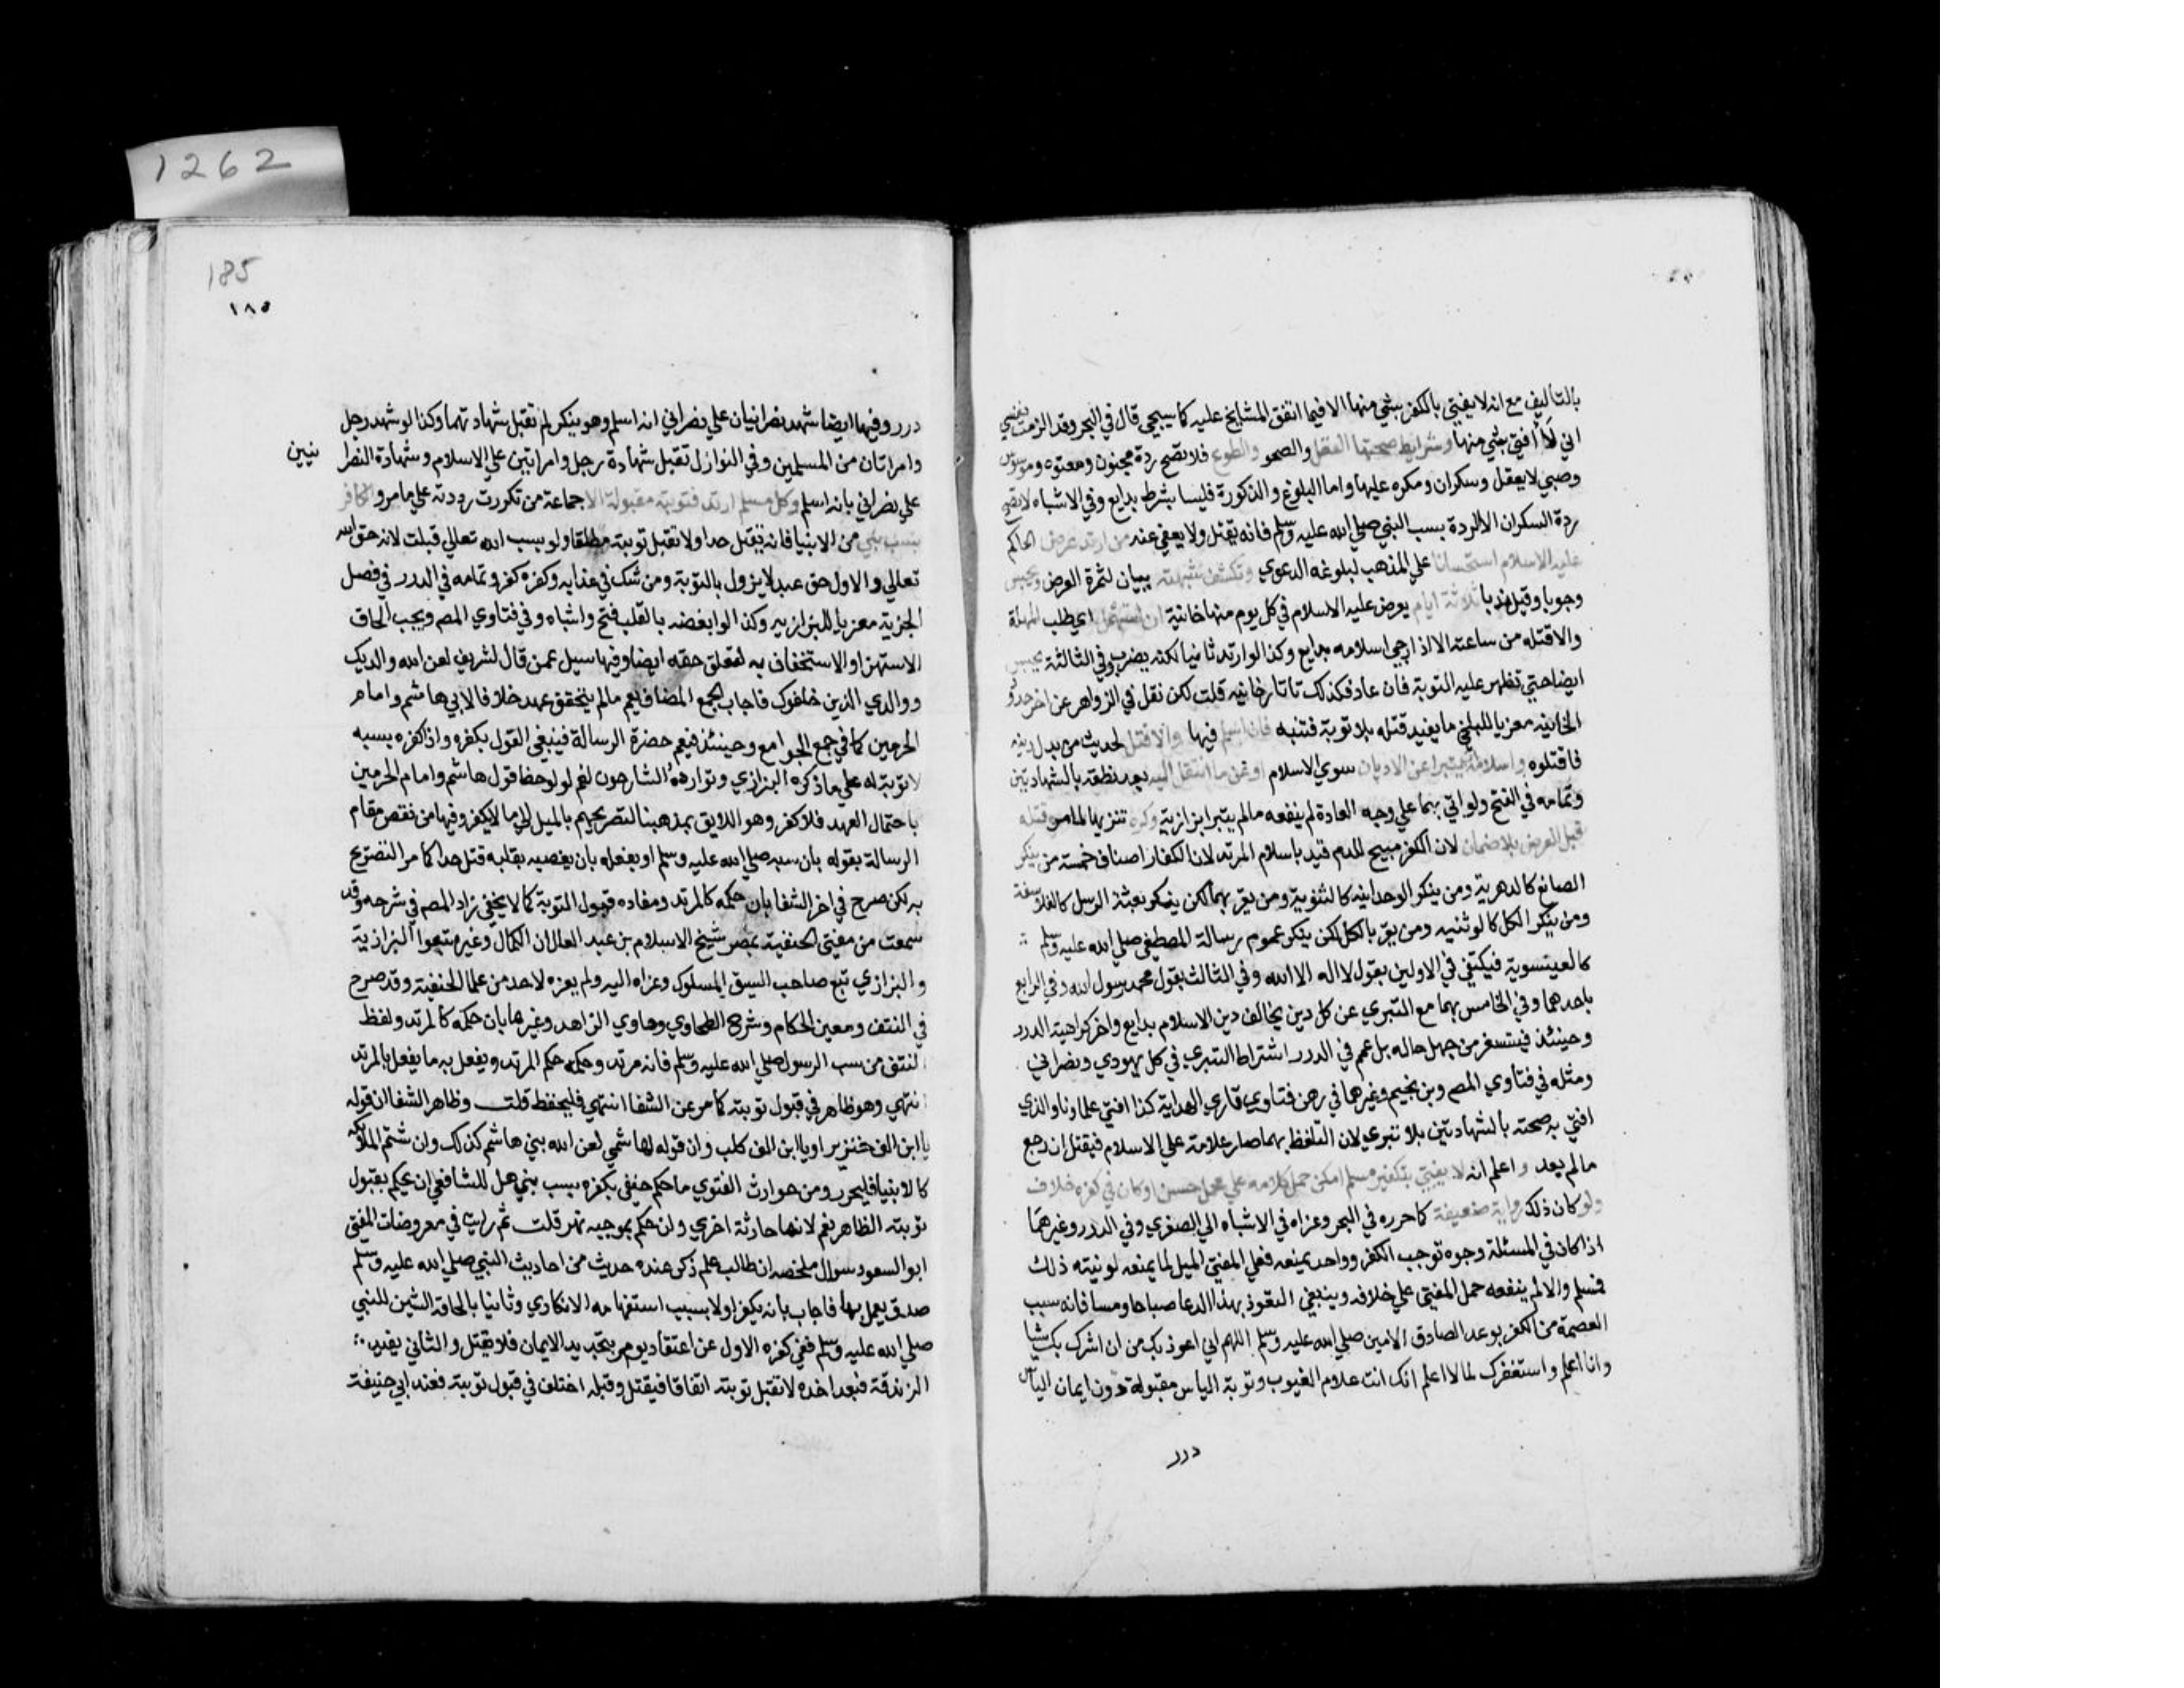 1262
بالتأليف مع انه لا يفتي بالكفر بشي منها الا فيما اتفق المشايخ عليه كما سيجي قال في البحر وقد الزمت نفسي
اني لا أفتي بشي منها وشرايط صحتها العقل والصحو والطوع فلا تصح ردة مجنون ومعتوه وموسوس
وصبي لا يعقل وسكران ومكره عليها واما البلوغ والذكورة فليسا بشرط بدايع وفي الاشباه لا تصح
ردة السكران الا الردة بسب النبي صلي الله عليه وسلم فانه يقتل ولا يعفي عنه من ارتد عرض الحاكم
عليه الاسلام استحسانا علي المذهب لبلوغه الدعوي وتكشف شبهته بيان لثمرة العرض ويحبس
وجوبا وقيل ندبا ثلاثة ايام يعرض عليه الاسلام في كل يوم منها خانية ان استمهل اي طلب المهلة
والا قتله من ساعته الا اذا رجي اسلامه بدايع وكذا لو ارتد ثانيا لكنه يضرب وفي الثالثة يحبس
ايضا حتي تظهر عليه التوبة فان عاد فكذلك تاتارخانيه قلت لكن نقل في الزواهر عن اخر حدود
الخانيه معزيا للبلخي ما يفيد قتله بلا توبة فتنبه فان اسلم فيها والا قتل لحديث من بدل دينه
فاقتلوه واسلامه ان يتبرا عن الاديان سوي الاسلام او عن ما انتقل اليه بعد نطقه بالشهادتين
وتمامه في الفتح ولو اتي بهما علي وجه العادة لم ينفعه مالم يتبرا بزازية وكره تنزيها لما مر قتله
قبل العرض بلا ضمان لان الكفر مبيح للدم قيد باسلام المرتد لان الكفار اصناف خمسة من ينكر
الصانع كالدهرية ومن ينكر الوحدانيه كالثنوية ومن يقر بهما لكن ينكر بعثة الرسل كالفلاسفة
ومن ينكر الكل كالوثنيه ومن يقر بالكل لكن ينكر عموم رسالة المصطفي صلي الله عليه وسلم
كالعيسوية فيكتفي في الاولين بقول لا اله الا الله وفي الثالث بقول محمد رسول الله وفي الرابع
باحدهما وفي الخامس بهما مع التبري عن كل دين يخالف دين الاسلام بدايع واخر كراهية الدرر
وحينئذ فيستفسر من جهل حاله بل عمم في الدرر اشتراط التبري في كل يهودي ونصراني
ومثله في فتاوي المص وبن نجيم وغيرها في رهن فتاوي قاري الهداية كذا افتي علماونا والذي
افتي به صحته بالشهادتين بلا تبري لان التلفظ بهما صار علامة علي الاسلام فيقتل ان رجع
مالم يعد واعلم انه لا يفتي بتكفير مسلم امكن حمل كلامه علي محمل حسن او كان في كفره خلاف
ولو كان ذلك رواية ضعيفة كما حرره في البحر وعزاه في الاشباه الي الصغري وفي الدرر وغيرهما
اذا كان في المسئلة وجوه توجب الكفر وواحد يمنعه فعلي المفتي الميل لما يمنعه لو نيته ذلك
فمسلم والا لم ينفعه حمل المفتي علي خلافه وينبغي التعوذ بهذا الدعا صباحا ومسا فانه سبب
العصمة من الكفر بوعد الصادق الامين صلي الله عليه وسلم اللهم اني اعوذ بك من ان اشرك بك شيا
وانا اعلم واستغفرك لما لا اعلم انك انت علام الغيوب وتوبة الياس مقبولة دون ايمان الياس
درر
185
١٨٥
درر وفيها ايضا شهد نصرانيان علي نصراني انه اسلم وهو ينكر لم تقبل شهادتهما وكذا لو شهد رجل
وامراتان من المسلمين وفي النوازل تقبل شهادة رجل وامراتين علي الاسلام وشهادة النصرا نيين
علي نصراني بانه اسلم وكل مسلم ارتد فتوبته مقبولة الا جماعة من تكررت ردته علي ما مر والكافر
بسب نبي من الانبيا فانه يقتل حدا ولا تقبل توبته مطلقا ولو بسب الله تعالي قبلت لانه حق الله
تعالي والاول حق عبد لا يزول بالتوبة ومن شك في عذابه وكفره كفر وتمامه في الدرر في فصل
الجزية معزيا للبزازيه وكذا لو ابغضه بالقلب فتح واشباه وفي فتاوي المص ويجب الحاق
الاستهزا والاستخفاف به لتعلق حقه ايضا وفيها سيل عمن قال لشريف لعن الله والديك
ووالدي الذين خلفوك فاجاب الجمع المضاف يعم مالم يتحقق عهد خلافا لابي هاشم وامام
الحرمين كما في جمع الجوامع وحينئذ فيعم حضرة الرسالة فينبغي القول بكفره واذا كفره بسبه
لا توبة له علي ما ذكره البزازي وتوارده الشارحون نعم لو لوحظ قول هاشم وامام الحرمين
باحتمال العهد فلا كفر وهو اللايق بمذهبنا لتصريحهم بالميل الي ما لا يكفر وفيها من نقص مقام
الرسالة بقوله بان سبه صلي الله عليه وسلم او بفعله بان بغضه بقلبه قتل حدا كما مر التصريح
به لكن صرح في اخر الشفا بان حكمه كالمرتد ومفاده قبول التوبة كما لا يخفي زاد المص في شرحه وقد
سمعت من مفتي الحنفية بمصر شيخ الاسلام بن عبد العال ان الكمال وغيره تبعوا البزازية
والبزازي تبع صاحب السيف المسلول وعزاه اليه ولم يعزه لاحد من علما الحنفية وقد صرح
في النتف ومعين الحكام وشرح الطحاوي وحاوي الزاهد وغيرها بان حكمه كالمرتد ولفظ
النتف من سب الرسول صلي الله عليه وسلم فانه مرتد وحكمه حكم المرتد ويفعل به ما يفعل بالمرتد
انتهي وهو ظاهر في قبول توبته كما مر عن الشفا انتهي فليحفظ قلت وظاهر الشفا ان قوله
يا ابن الف خنزير او يا ابن الف كلب وان قوله لهاشمي لعن الله بني هاشم كذلك وان شتم الملائكه
كالانبيا فليحرر ومن حوادث الفتوي ما حكم حنفي بكفره بسب نبي هل للشافعي ان يحكم بقبول
توبته الظاهر نعم لانها حادثة اخري وان حكم بموجبه نهر قلت ثم رايت في معروضات المفتي
ابو السعود سوال ملخصه ان طالب علم ذكر عنده حديث من احاديث النبي صلي الله عليه وسلم
صدق يعمل بها فاجاب بانه يكفر اولا بسبب استفهامه الانكاري وثانيا بالحاقه الشين للنبي
صلي الله عليه وسلم ففي كفره الاول عن اعتقاد يومر بتجديد الايمان فلا يقتل والثاني يفيد
الزندقة فبعد اخذه لا تقبل توبته اتفاقا فيقتل وقبله اختلف في قبول توبته فعند ابي حنيفة